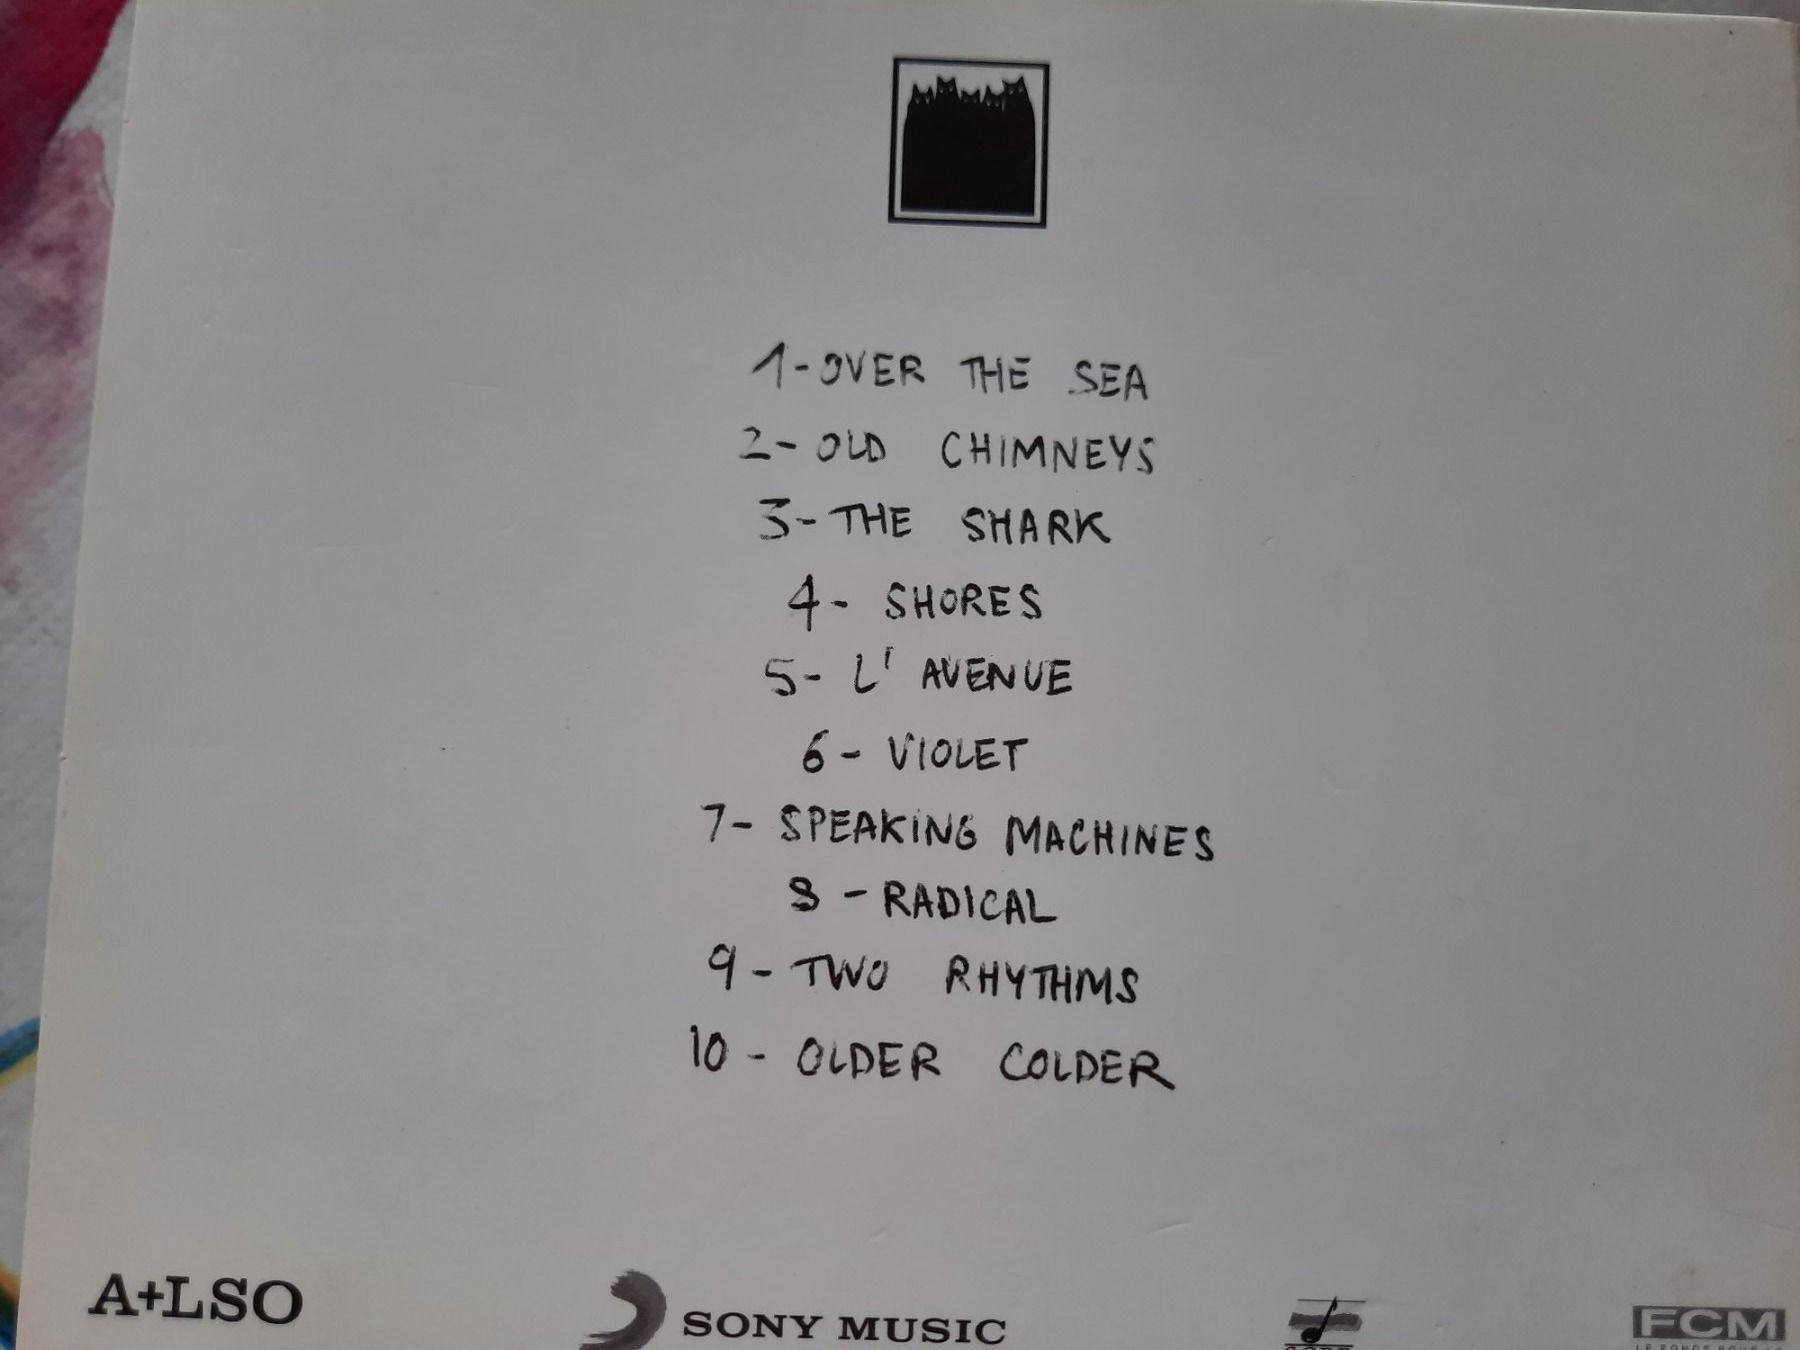 1-OVER THE SEA
2- OLD CHIMNEYS
3- THE SHARK
4- SHORES
5- L' AVENUE
6- VIOLET
7- SPEAKING MACHINES
8 - RADICAL
9 - TWO RHYTHMS
10 - OLDER COLDER
A+LSO
SONY MUSIC
FCM